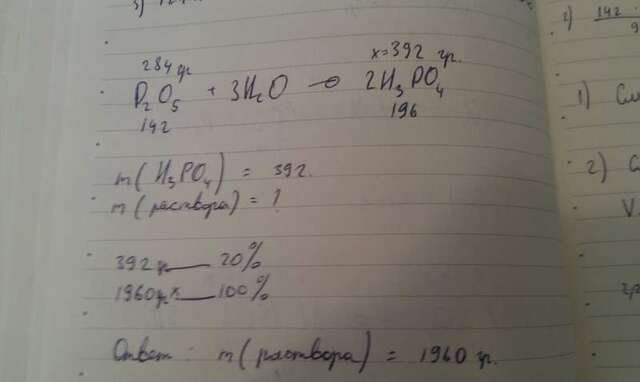 284 гр x=392 гр.
P₂O₅ + 3H₂O → 2H₃PO₄
142 196
m(H₃PO₄) = 392.
m(раствора) = ?
392 гр — 20%
1960 гр x — 100%
Ответ: m(раствора) = 1960 гр.
2) 142
1)
2)
V
гр